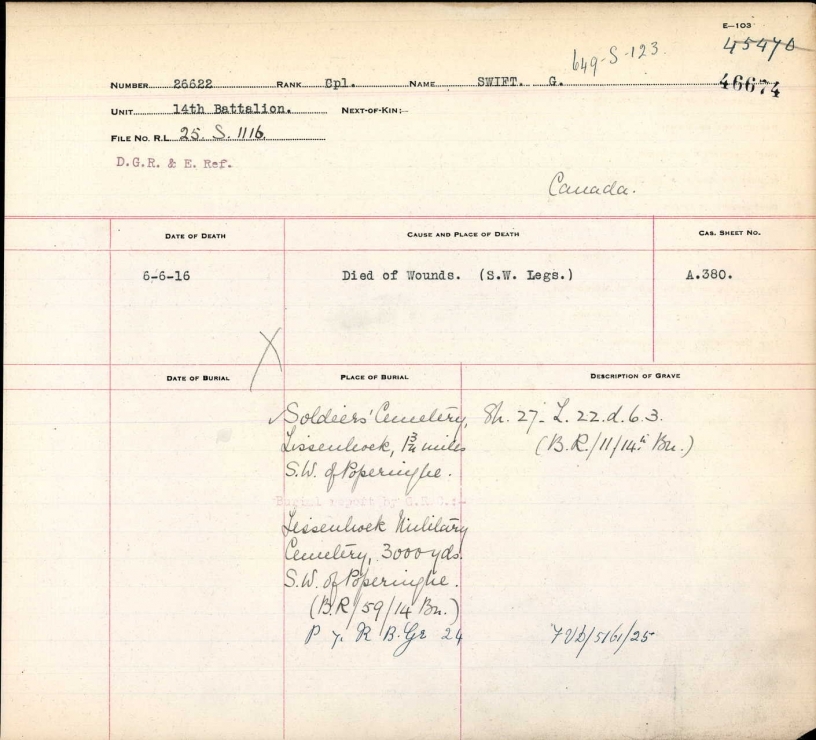 E—103
45470
649-S-123.
NUMBER 26622 RANK Cpl. NAME SWIFT. G. 46674
UNIT 14th Battalion. NEXT-OF-KIN:—
FILE NO. R.L. 25. S. 1116.
D.G.R. & E. Ref.
Canada.
DATE OF DEATH CAUSE AND PLACE OF DEATH CAS. SHEET NO.
6-6-16 Died of Wounds. (S.W. Legs.) A.380.
X
DATE OF BURIAL PLACE OF BURIAL DESCRIPTION OF GRAVE
Soldiers' Cemetery, Sh. 27- L. 22.d.6.3.
Lissenhoek, 1¾ miles (B.R./11/14th Bn.)
S.W. of Poperinghe.
Burial report by G.R.C.:—
Lissenhoek Military
Cemetery, 3000 yds.
S.W. of Poperinghe.
(B.R/59/14 Bn.)
P 7. R B. Gr 24